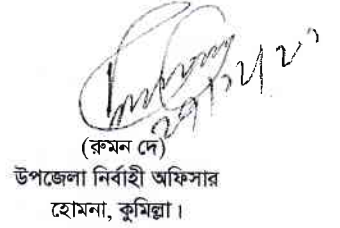 (রুমন দে)
উপজেলা নির্বাহী অফিসার
হোমনা, কুমিল্লা।